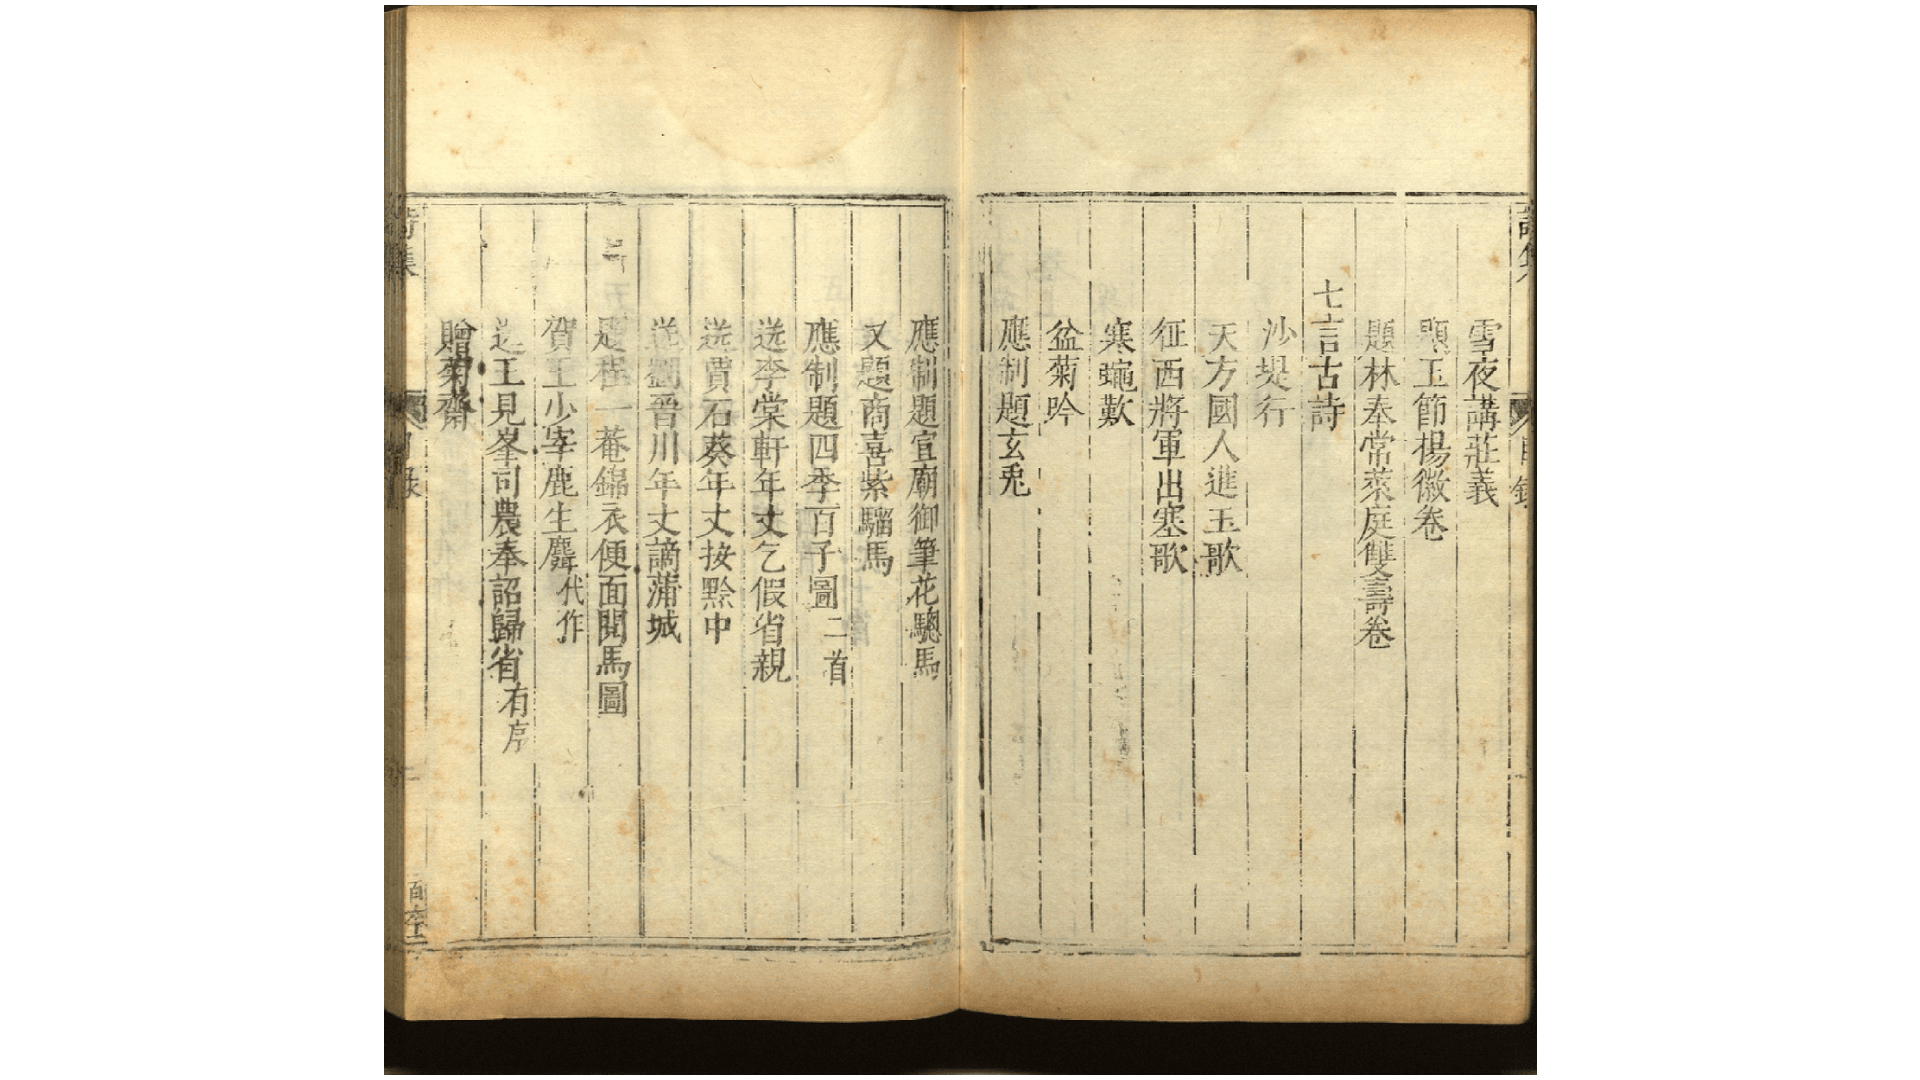 雪夜講莊義
題玉節楊徽卷
題林奉常萊庭雙壽卷
七言古詩
沙堤行
天方國人進玉歌
征西將軍出塞歌
寒蠅歎
盆菊吟
應制題玄兎
應制題宣廟御筆花驄馬
又題商喜紫騮馬
應制題四季百子圖二首
送李棠軒年丈乞假省親
送賈石葵年丈按黔中
送劉晉川年丈謫蒲城
題程一菴錦衣便面閱馬圖
賀王少宰鹿生麛代作
送王見峯司農奉詔歸省有序
贈菊齋
詩集
目錄